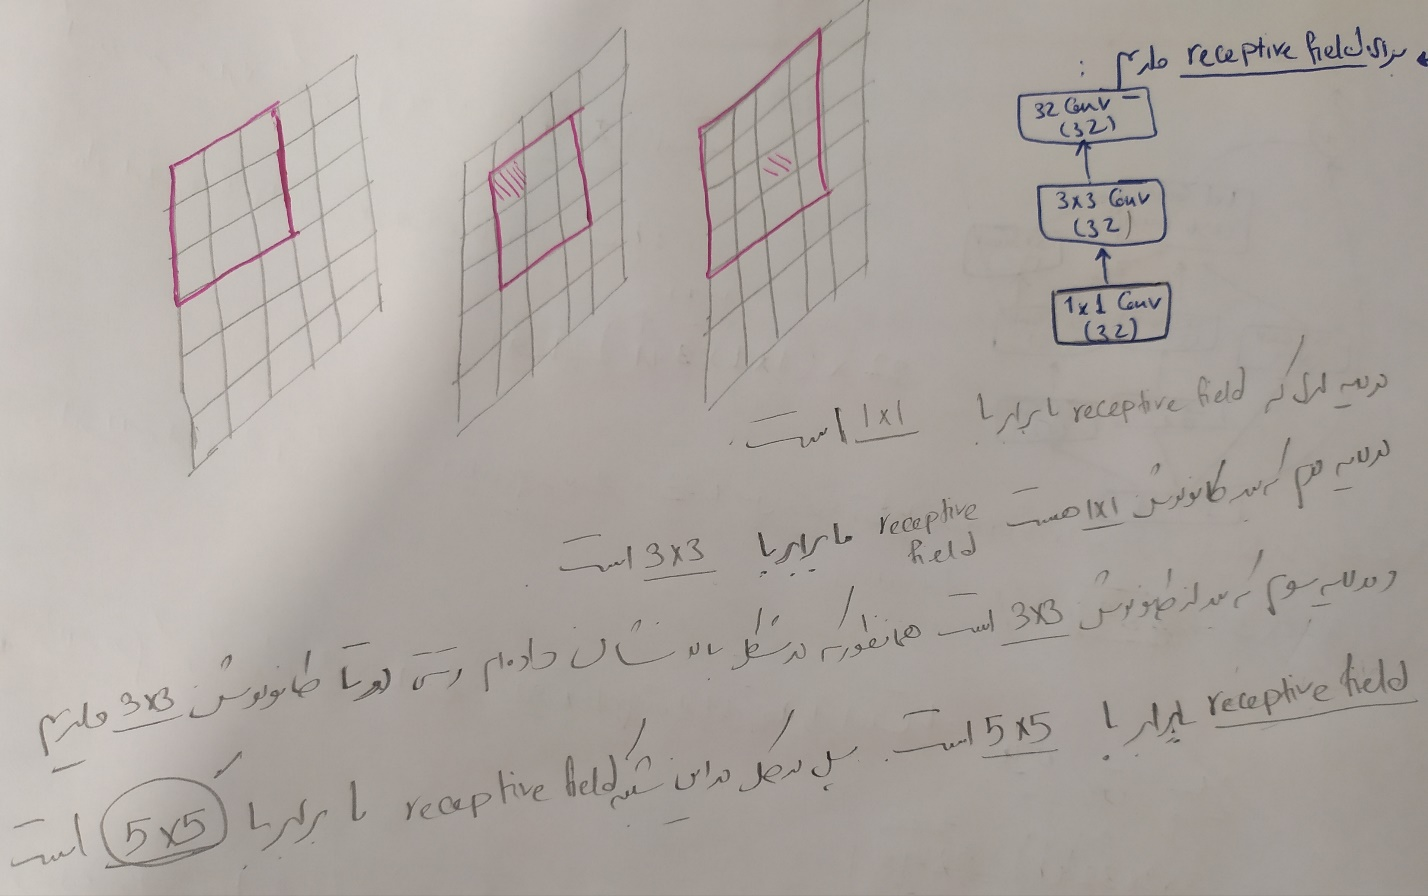 برای receptive field داریم :
32 Conv
(32)
3x3 Conv
(32)
1x1 Conv
(32)
در لایه اول که receptive field ما برابر با 1x1 است
در لایه دوم که بعد کانولوشن 1x1 هست receptive field ما برابر با 3x3 است
و در لایه سوم که بعد از کانولوشن 3x3 است همانطور که در شکل بالا نشان داده‌ام وقتی دو تا کانولوشن 3x3 داریم
receptive field برابر با 5x5 است. پس در کل در این شبکه receptive field ما برابر با 5x5 است